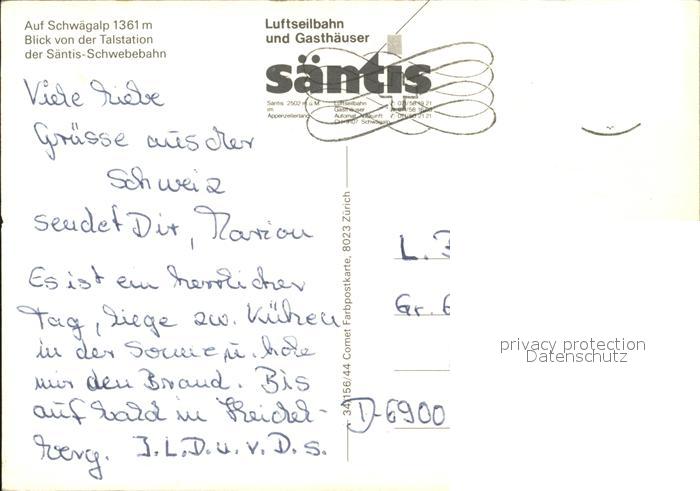 Auf Schwägalp 1361 m
Blick von der Talstation
der Säntis-Schwebebahn
Luftseilbahn
und Gasthäuser
säntis
Säntis 2502 m ü.M.
im
Appenzellerland
Luftseilbahn
Gasthäuser
Automat. Auskunft
CH-9107 Schwägalp
Viele liebe
Grüsse aus der
Schweiz
sendet Dir, Marion
Es ist ein herrlicher
Tag, liege zw. Kühen
in der Sonne u. hole
mir den Brand. Bis
auf bald in Heidel-
berg. I.L.D.u.v.D.s.
34 156/44 Comet Farbpostkarte, 8023 Zürich
L.
Gr.
D-6900
privacy protection
Datenschutz